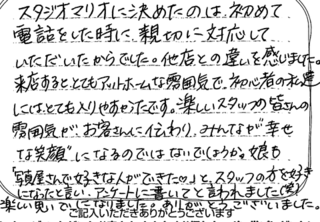 スタジオマリオに決めたのは、初めて
電話をした時に、親切に対応して
いただいたからでした。他店との違いを感じました。
来店すると、とてもアットホームな雰囲気で、初心者の私達
には、とても入りやすかったです。楽しいスタッフの皆さんの
雰囲気が、お客さんに伝わり、みんなが“幸せ
な笑顔”になるのではないでしょうか。娘も
「写真屋さんで好きな人ができたの。」と、スタッフの方を好き
になったと言い、アンケートに書いてと言われました(笑)
楽しい思いでになりました。ありがとうございました。
ご記入いただきありがとうございます